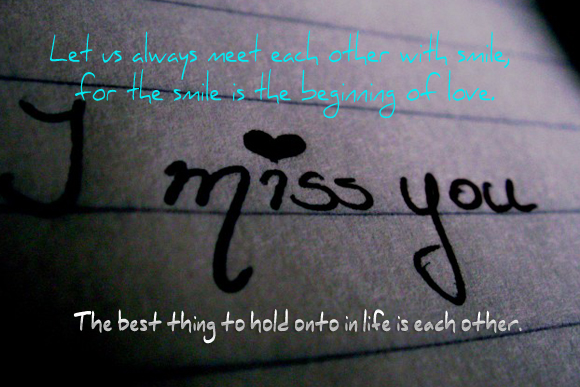 Let us always meet each other with smile,
for the smile is the beginning of love.
I miss you
The best thing to hold onto in life is each other.